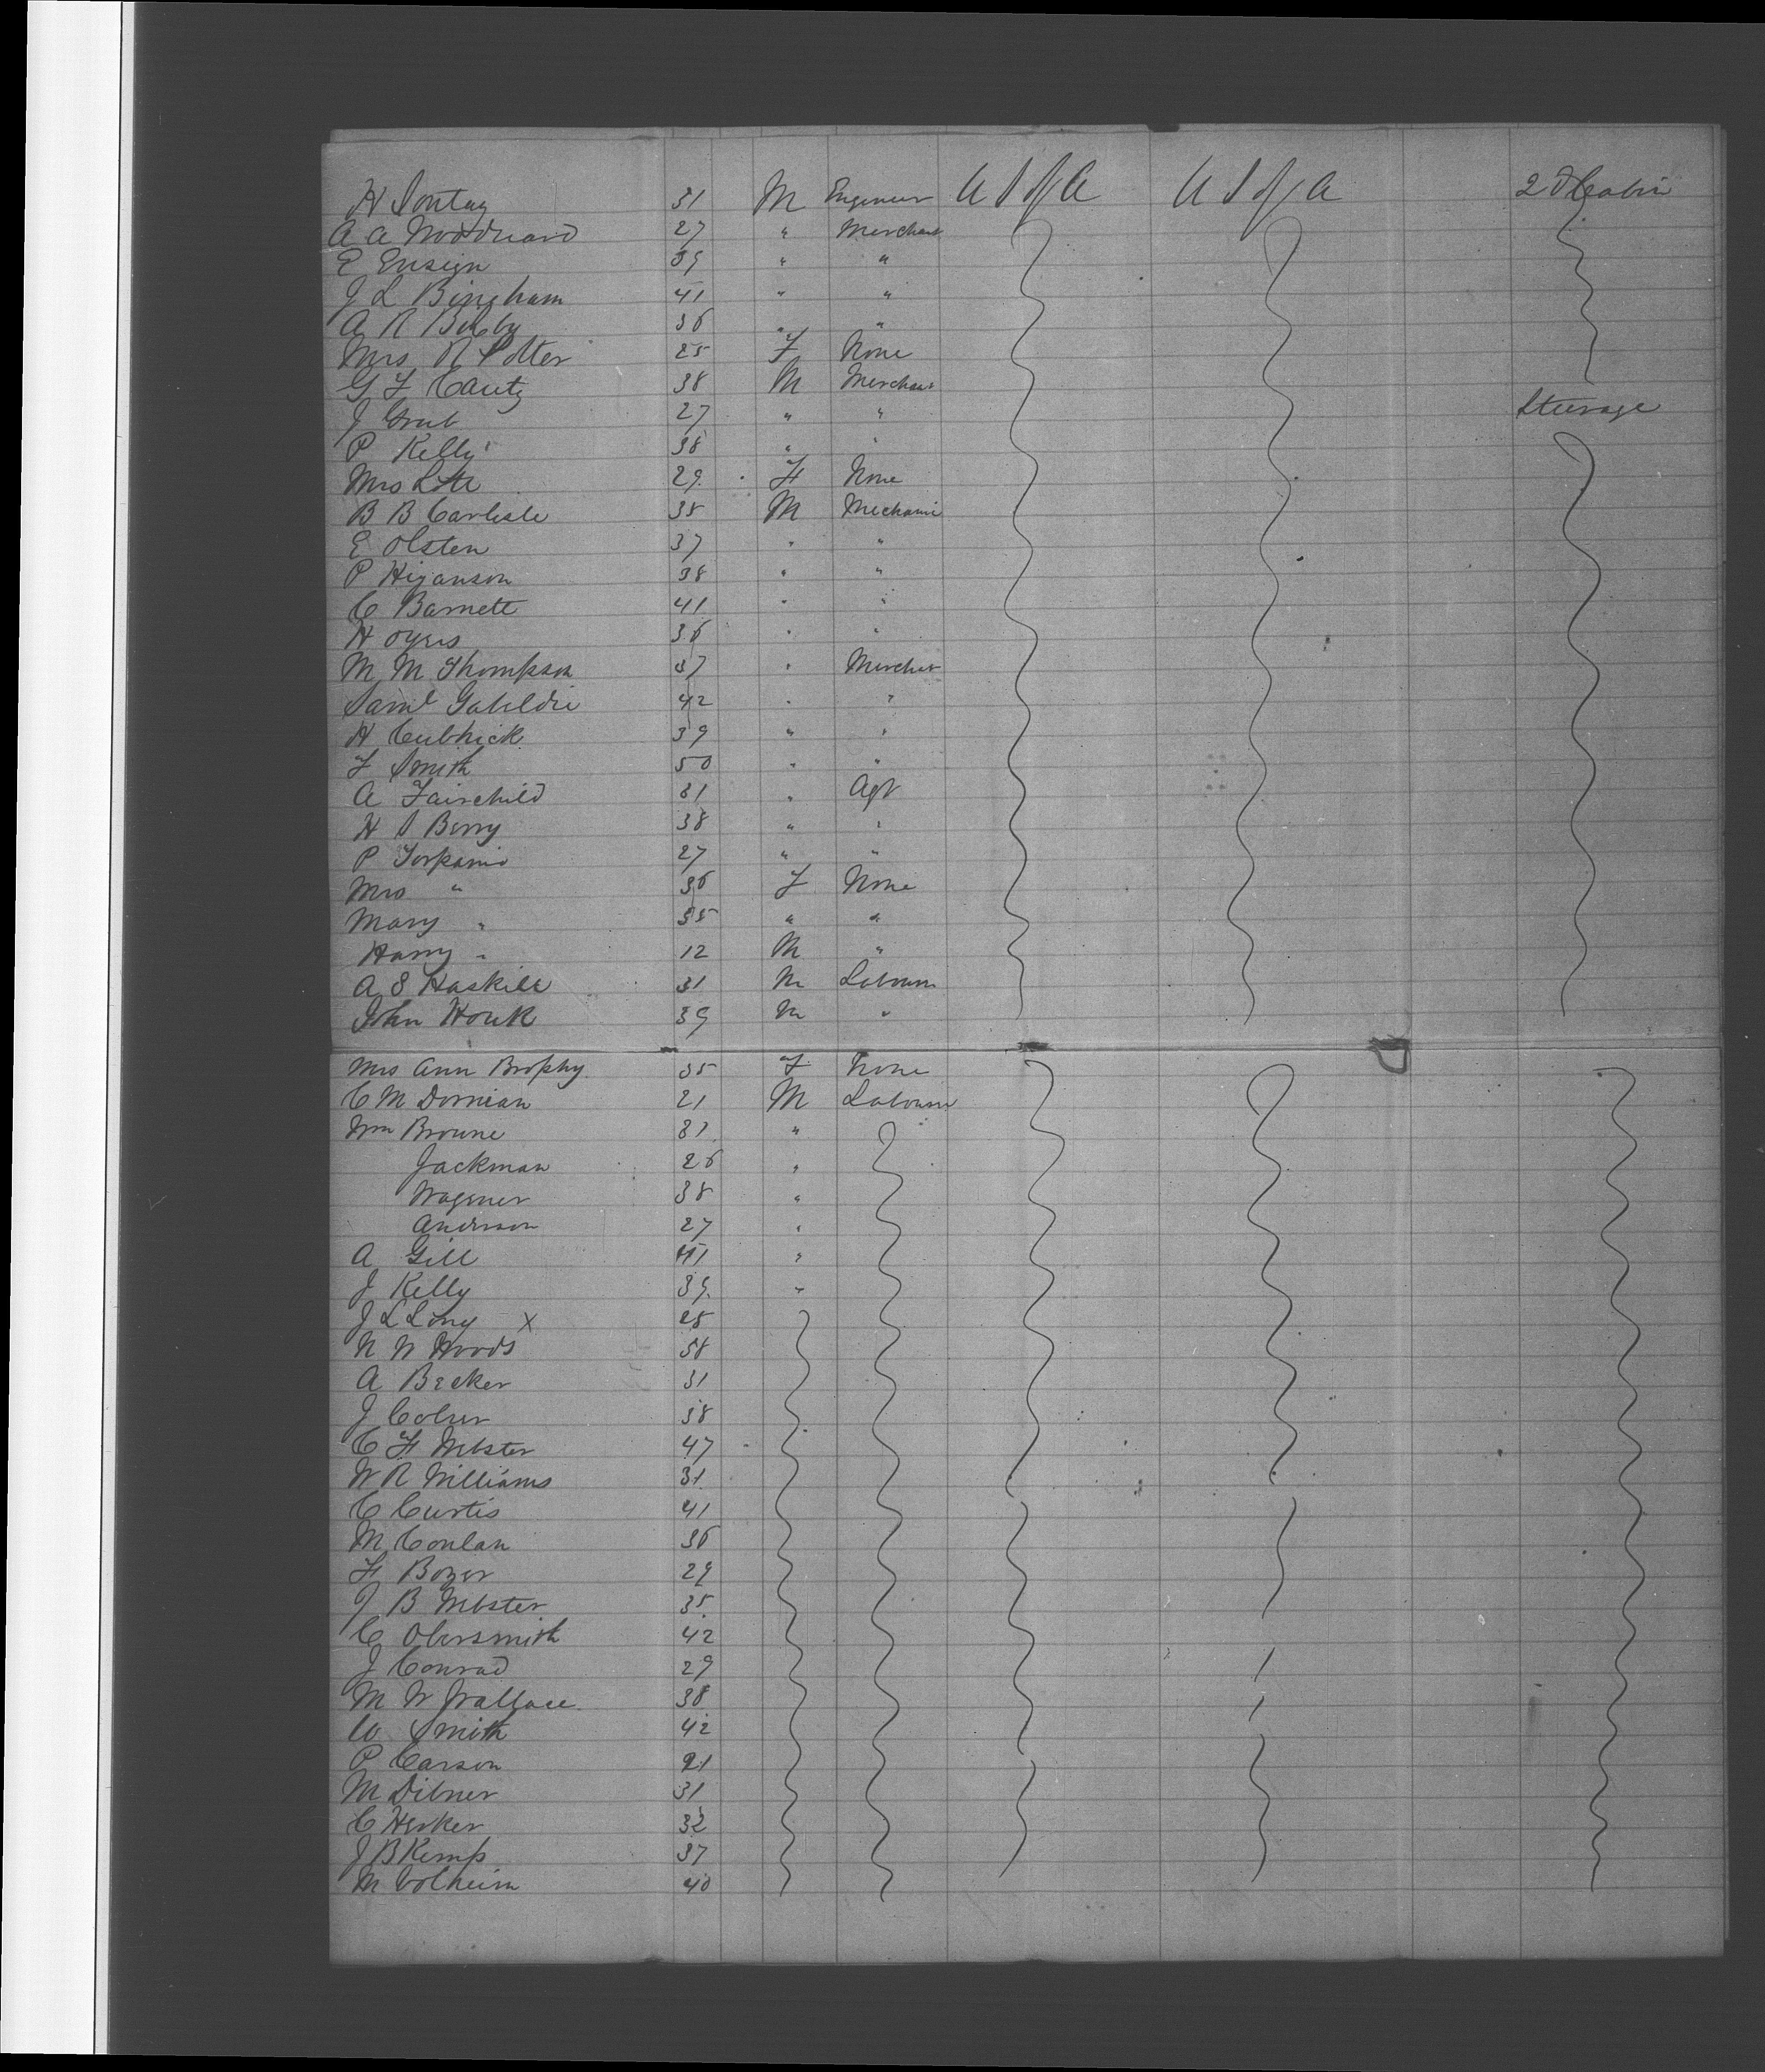 H Sontag 31 M Engineer U S of A U S of A 2d Cabin
A A Woodward 27 " Merchant
E Ensign 39 " "
J L Bingham 41 " "
A R Bixby 36 " "
Mrs R Potter 25 F None
G F Cautz 38 M Merchant
J Grub 27 " " Steerage
P Kelly 38 " "
Mrs Lott 29 F None
B B Carlisle 38 M Mechanic
E Olsten 37 " "
P Higanson 38 " "
C Barnett 41 " "
H Oyers 36 " "
M M Thompson 37 " Merchat
Saml 42 " "
H 39 " "
F Smith 50 " "
A Fairchild 31 " Agt
H S Berry 38 " "
P 27 " "
Mrs " 36 F None
Mary " 35 " "
Harry " 12 M "
A S Haskill 31 M Labourer
John Houk 39 M "
Mrs Ann Brophy 35 F None
C M Dornian 21 M Labourer
Wm Browne 31 "
Jackman 26 "
Wagener 38 "
Anderson 27 "
A Gill 41 "
J Kelly 39 "
J L Long X 28
N W Woods 38
A Becker 31
J Colver 38
C F Webster 47
W R Williams 31
C Curtis 41
M Conlan 36
F Bozer 29
J B Webster 35
C Obersmith 42
J Conrad 29
M W Wallace 38
W Smith 42
P Carson 21
M Dibner 31
C Herker 32
J B Kemp 37
M Colheim 40